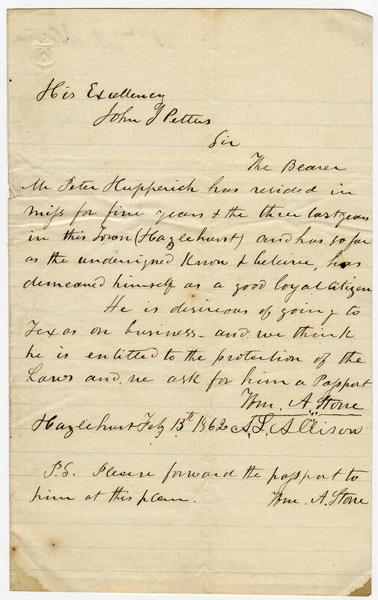 His Excellency
John J Pettus
Sir
The Bearer
Mr Peter Hupperich has resided in
miss for five years & the three last years
in this Town (Hazlehurst) and has so far
as the undersigned Know & believe, has
demeaned himself as a good loyal Citizen
He is desireous of going to
Texas on business - and we think
he is entitled to the protection of the
Laws and we ask for him a Passport
Wm. A. Stone
Hazlehurst Feby 13th 1862 A. L. Allison
P.S. Please forward the passport to
him at this place. Wm. A. Stone